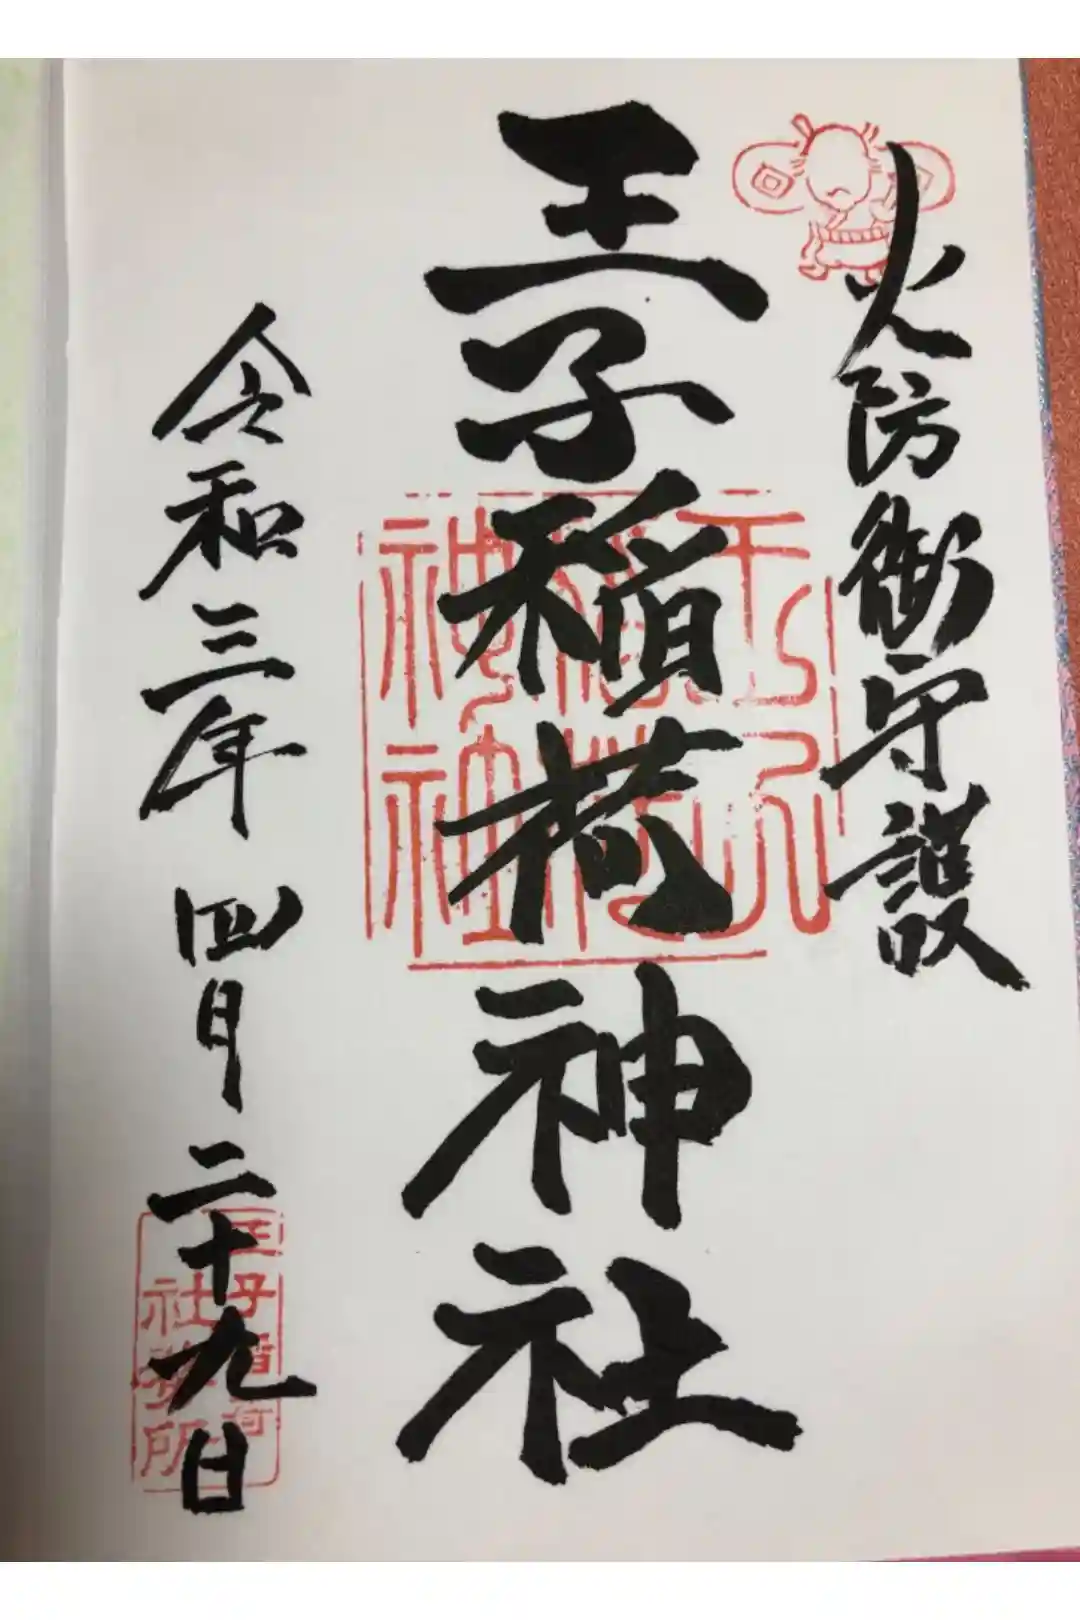 火防御守護
王子稲荷神社
令和三年 四月二十九日
王子稲荷
社務所